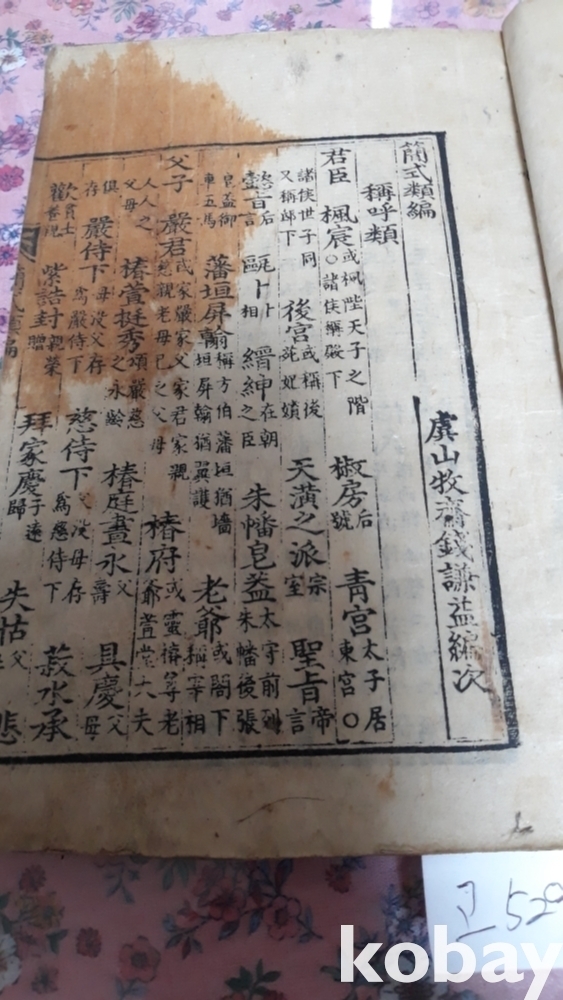 簡式類編
虞山牧齋錢謙益編次
稱呼類
君臣 楓宸 或楓陛天子之階 椒房 后號 青宮 太子居東宮〇
〇諸侯稱殿下 諸侯世子同又稱邸下 後宮 或稱後 妃嬪 天潢之派 宗室 聖旨 帝言
懿旨 后言 甌卜 卜相 縉紳 在朝之臣 朱幡皂盖 太守前列朱幡後張
皂盖御車五馬 藩垣屏翰 稱方伯藩垣猶墻垣屏翰猶翼護 老爺 或閤下稱宰相
父子 嚴君 或家嚴家父家君家親 慈親老母已之父母 椿府 或靈椿等老爺萱堂大夫
人人之父母 椿萱挺秀 頌嚴慈之永齡 椿庭晝永 父壽 具慶 父母
俱存 嚴侍下 母沒父存為嚴侍下 慈侍下 父沒母存為慈侍下 菽水承
歡 貧士養親 紫誥封 贈親榮 拜家慶 子遠歸 失怙 父 悲
고 529
kobay